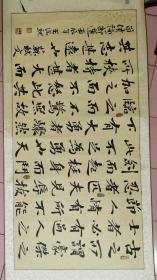 古之所謂豪傑之
士者必有過人之
節人情有所不能
忍者匹夫見辱拔
劍而起挺身而鬥
此不足為勇也天
下有大勇者卒然
臨之而不驚無故
加之而不怒此其
所挾持者甚大而
其志甚遠也